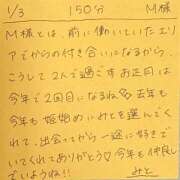 1/3 150分 M様
M様とは、前に働いていたエリ
アでからの付き合いになるから、
こうして2人で過ごすお正月は
今年で2回目になるね 去年も
今年も姫始めにみとを選んでく
れて、出会ってから一途に好きで
いてくれてありがとう♡今年も仲良し
でいようね!! みと